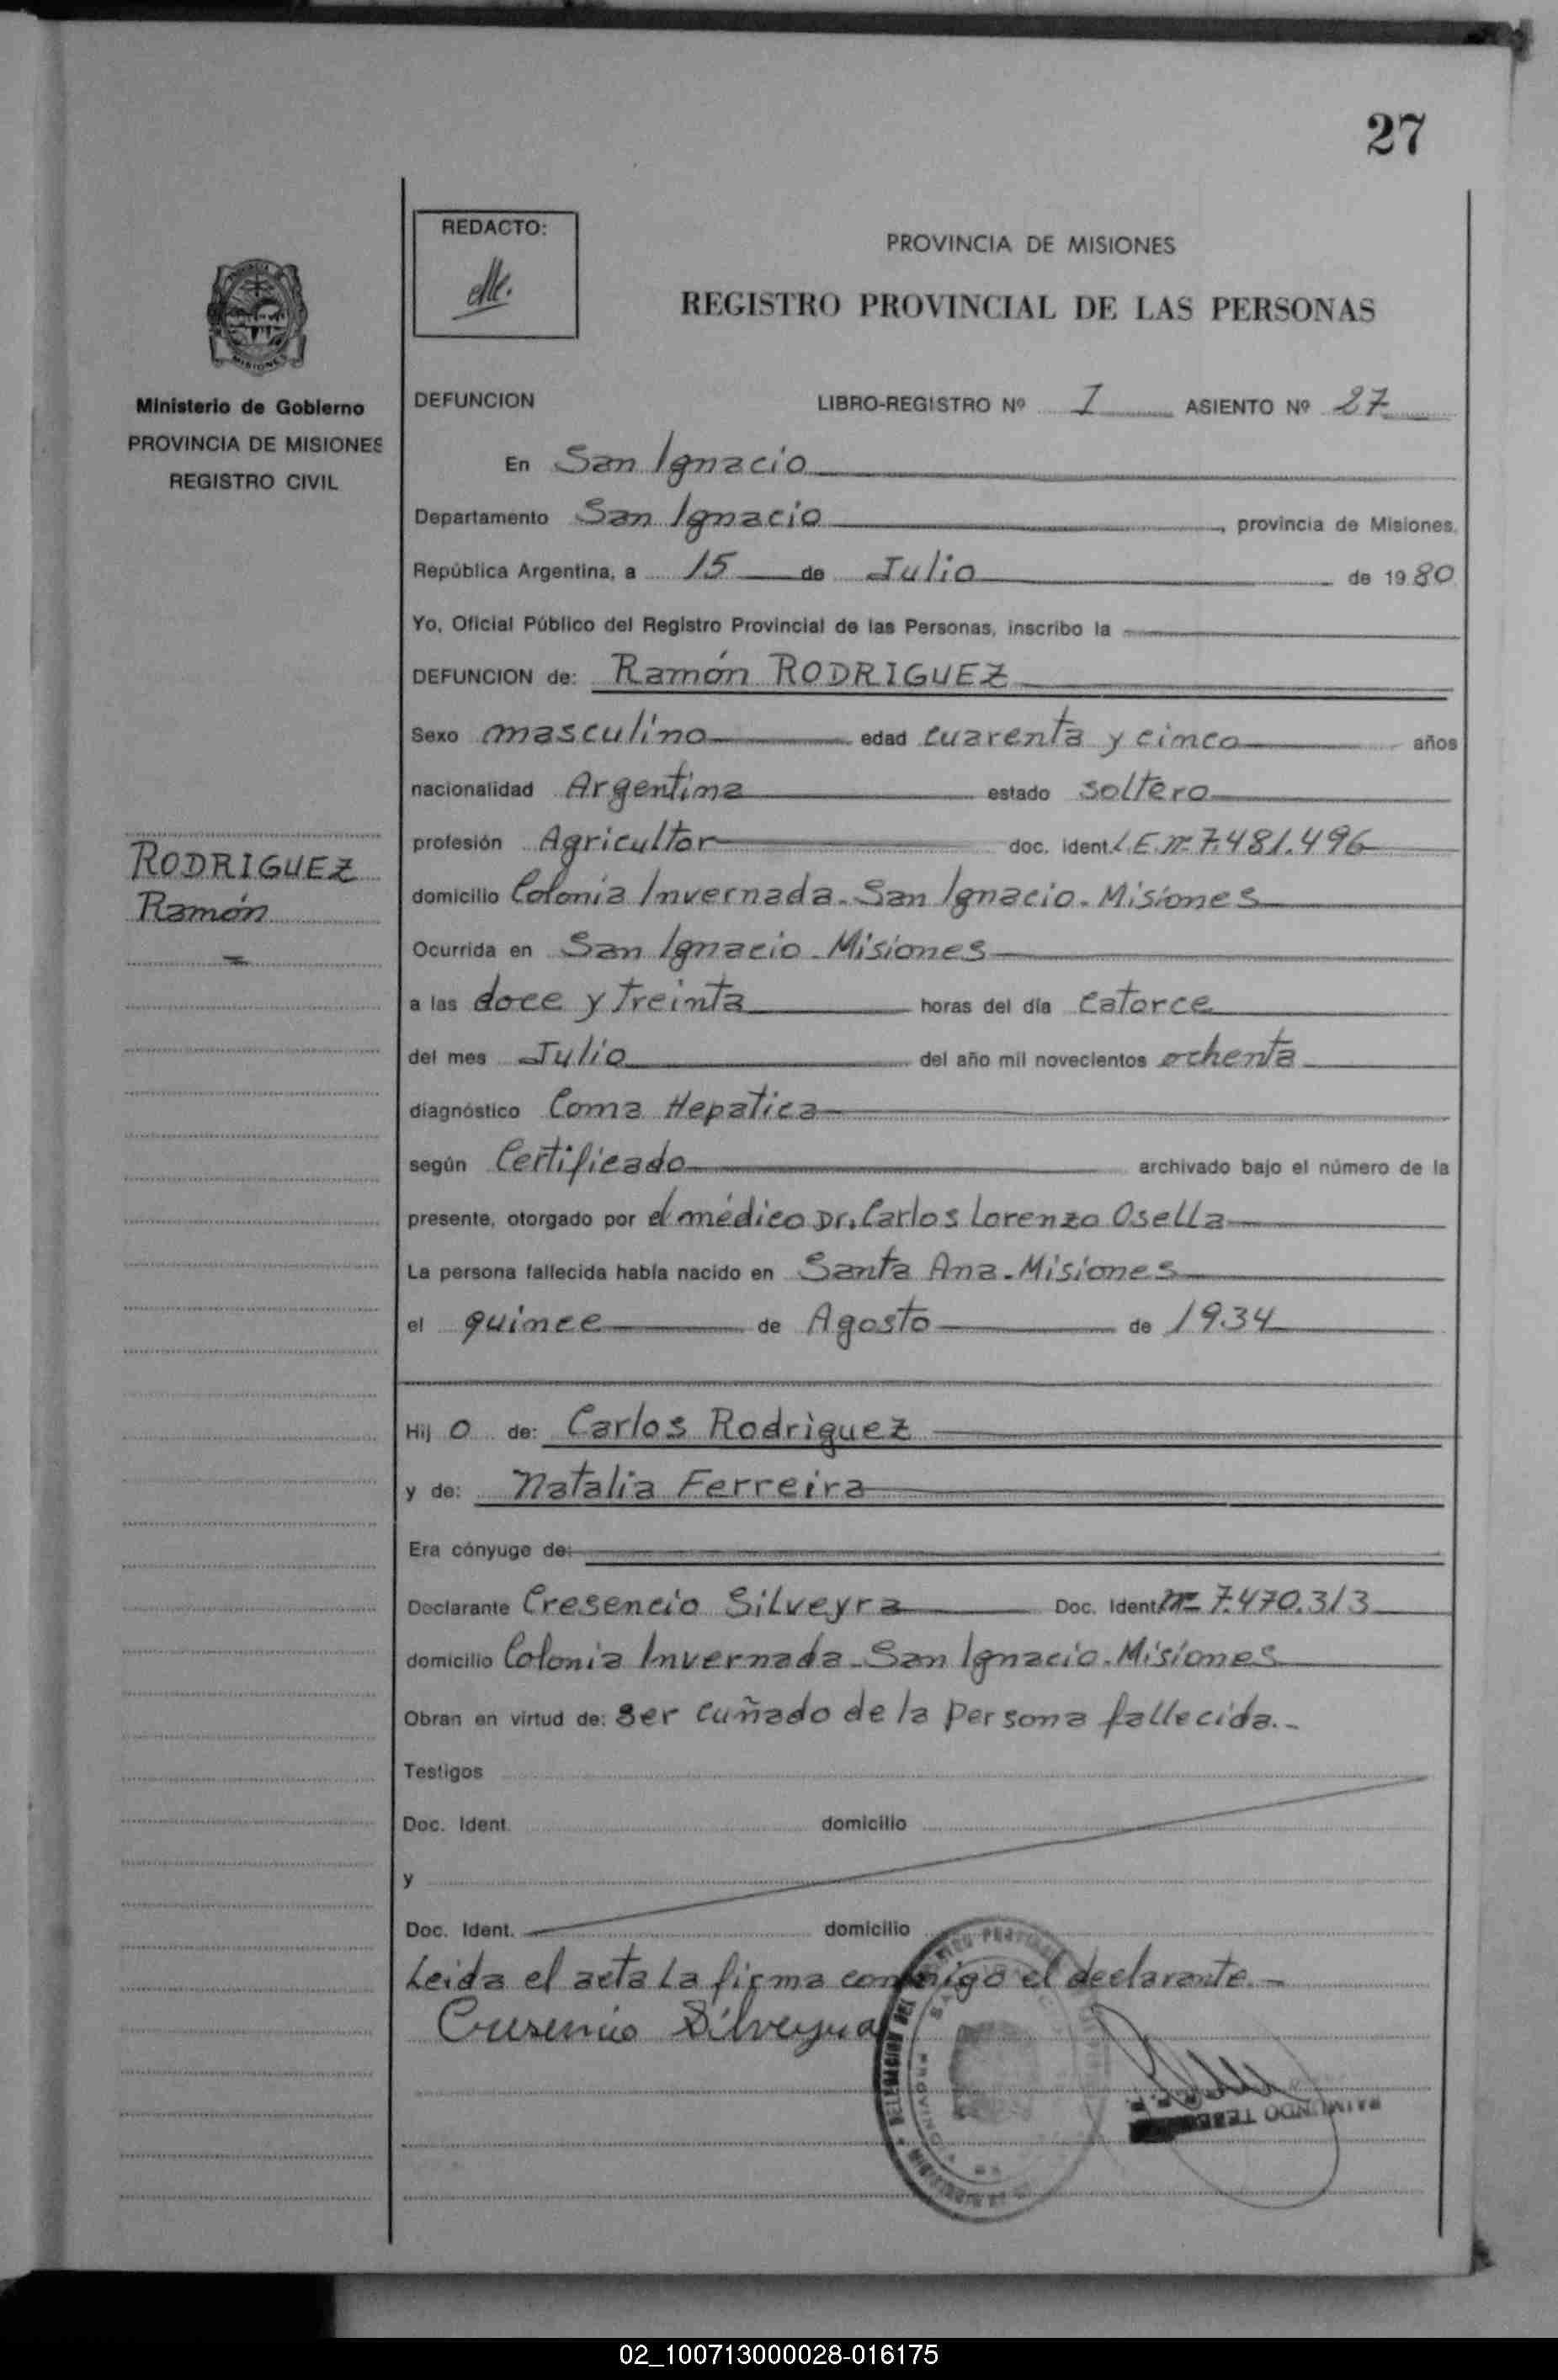 27
REDACTO:
PROVINCIA DE MISIONES
REGISTRO PROVINCIAL DE LAS PERSONAS
MISIONES
Ministerio de Gobierno
PROVINCIA DE MISIONES
REGISTRO CIVIL
DEFUNCION LIBRO-REGISTRO Nº I ASIENTO Nº 27
En San Ignacio
Departamento San Ignacio, provincia de Misiones,
República Argentina, a 15 de Julio de 1980
Yo, Oficial Público del Registro Provincial de las Personas, inscribo la
DEFUNCION de: Ramón RODRIGUEZ
Sexo masculino edad cuarenta y cinco años
nacionalidad Argentina estado soltero
RODRIGUEZ
Ramón
profesión Agricultor doc. ident. L.E.Nº 7.481.496
domicilio Colonia Invernada - San Ignacio - Misiones
Ocurrida en San Ignacio - Misiones
a las doce y treinta horas del día catorce
del mes Julio del año mil novecientos ochenta
diagnóstico Coma Hepatica
según Certificado archivado bajo el número de la
presente, otorgado por el médico Dr. Carlos Lorenzo Osella
La persona fallecida había nacido en Santa Ana - Misiones
el quince de Agosto de 1934
Hij o de: Carlos Rodriguez
y de: Natalia Ferreira
Era cónyuge de:
Declarante Cresencio Silveyra Doc. Ident. Nº 7.470.313
domicilio Colonia Invernada - San Ignacio - Misiones
Obran en virtud de: ser cuñado de la persona fallecida.-
Testigos
Doc. Ident. domicilio
y
Doc. Ident. domicilio
Leida el acta la firma conmigo el declarante.-
Cresencio Silveyra
RAIMUNDO
02_100713000028-016175